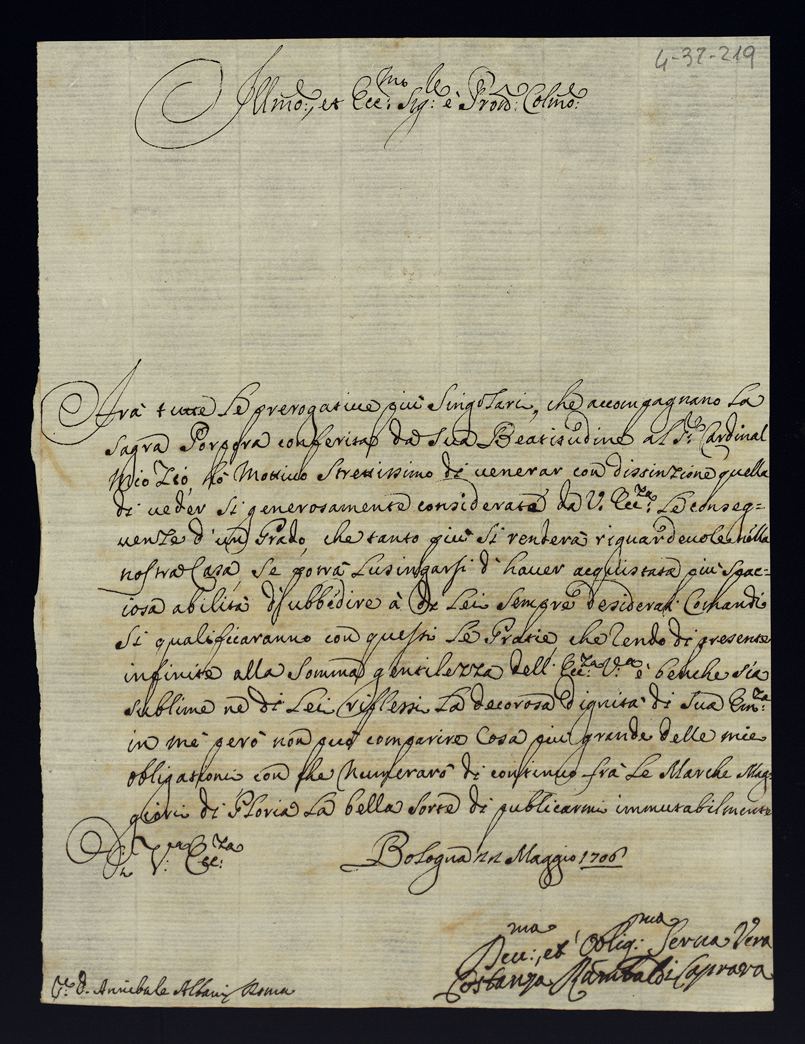 4-37-219
Illmo:, et Ecc:mo Sig:le e Prond: Colmo:
Frà tutte le prerogative più singolari, che accompagnano la
Sagra Porpora conferita da Sua Beatitudine al Sr. Cardinal
Mio Zio, hò Mottivo strettissimo di venerar con distinzione quella
di veder si generosamente considerate da V. Ecc:za le conseg=
uenze d'un Grado, che tanto più si renderà riguardevole nella
nostra Casa, se potrà Lusingarsi d'haver acquistata più spac=
iosa abilità d'ubbidire à di Lei sempre desiderati Comandi
Si qualificaranno con questi le Gratie, che rendo di presente
infinite alla somma gentilezza dell'Ecc:za V:a e benche sia
sublime ne di Lei riflessi la decorosa dignità di Sua Em:za
in me però non può comparire cosa più grande delle mie
obligationi con che Numerarò di continuo frà le Marche Mag=
giori di Gloria la bella sorte di publicarmi immutabilmente
Di V:ra Ecc:za
Bologna 22 Maggio 1706
Dev:ma, et Oblig:ma Serva Vera
Costanza Rambaldi Caprara
D. Annibale Albani Roma